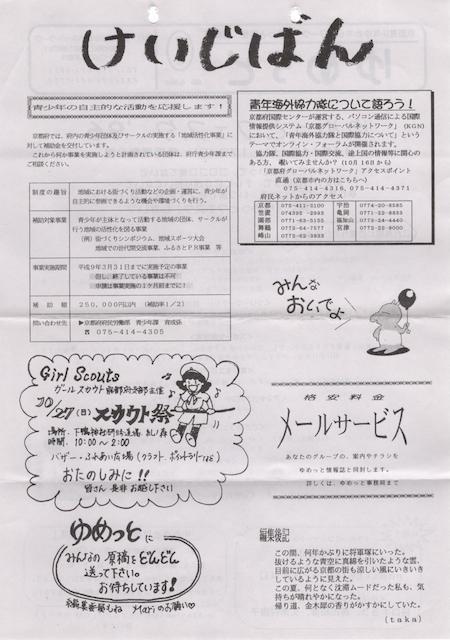 けいじばん
青少年の自主的な活動を応援します！
京都府では、府内の青少年団体及びサークルの実施する「地域活性化事業」に対して補助金を交付しています。
これから何か事業を実施しようと計画されている団体は、府庁青少年課までご相談ください。
制度の趣旨
地域における街づくり活動などの企画・運営に、青少年が
自主的に参画できるような機会や環境づくりを行う。
補助対象事業
青少年が主体となって活動する地域の団体、サークルが
行う地域の活性化を図る事業
（例）街づくりシンポジウム、地域スポーツ大会
地域での世代間交流事業、ふるさとPR事業 等
事業実施期間
平成９年３月３１日までに実施予定の事業
但し、終了している事業は不可
申請は事業実施の１ケ月前までに！
補助額
２５０，０００円以内 （補助率１／２）
問い合わせ先
▶京都府府民労働部 青少年課 育成係
☎ ０７５－４１４－４３０５
青年海外協力隊について語ろう！
京都府国際センターが運営する、パソコン通信による国際
情報提供システム「京都グローバルネットワーク」（KGN）
において、「青年海外協力隊と国際協力について」という
テーマでオンライン・フォーラムが開催されます。
協力隊、国際協力・国際交流、途上国の情報等に関心の
ある方、覗いてみませんか？（１０月１６から）
「京都府グローバルネットワーク」アクセスポイント
直通（京都市内の方はこちらへ）
０７５－４１４－４３１６、０７５－４１４－４３７１
府民ネットからのアクセス
京都 075-411-2100 宇治 0774-20-9385
園部 0771-63-5155 福知山 0773-24-4440
舞鶴 0773-64-7577 宮津 0772-22-9000
峰山 0772-62-3933
みんな
おいでよ♪
Girl Scouts
ガールスカウト京都府支部主催
10/27(日) スカウト祭
場所．下鴨神社研修道場 糺ノ森
時間．10:00～2:00
バザー・ふれあい広場
おたのしみに！！
皆さん是非お越し下さい
格安料金
メールサービス
あなたのグループの、案内やチラシを
ゆめっと情報誌と同封します。
詳しくは、ゆめっと事務局まで
ゆめっとに
みんなの原稿をどんどん
送って下さい。
お待ちしています！
編集後記
この間、何年かぶりに将軍塚にいった。
抜けるような青空に真綿を引いたような雲、
目前に広がる京都の街も涼しい風にいきいき
しているように見えた。
この夏、何となく沈滞ムードだった私も、気
持ちが晴れやかになった。
帰り道、金木犀の香りがかすかにしていた。
（taka）